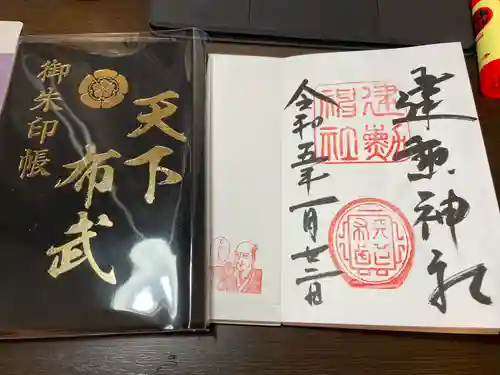 御朱印帳
天下
布武
建勲神社
建勲
神社
令和五年一月廿二日